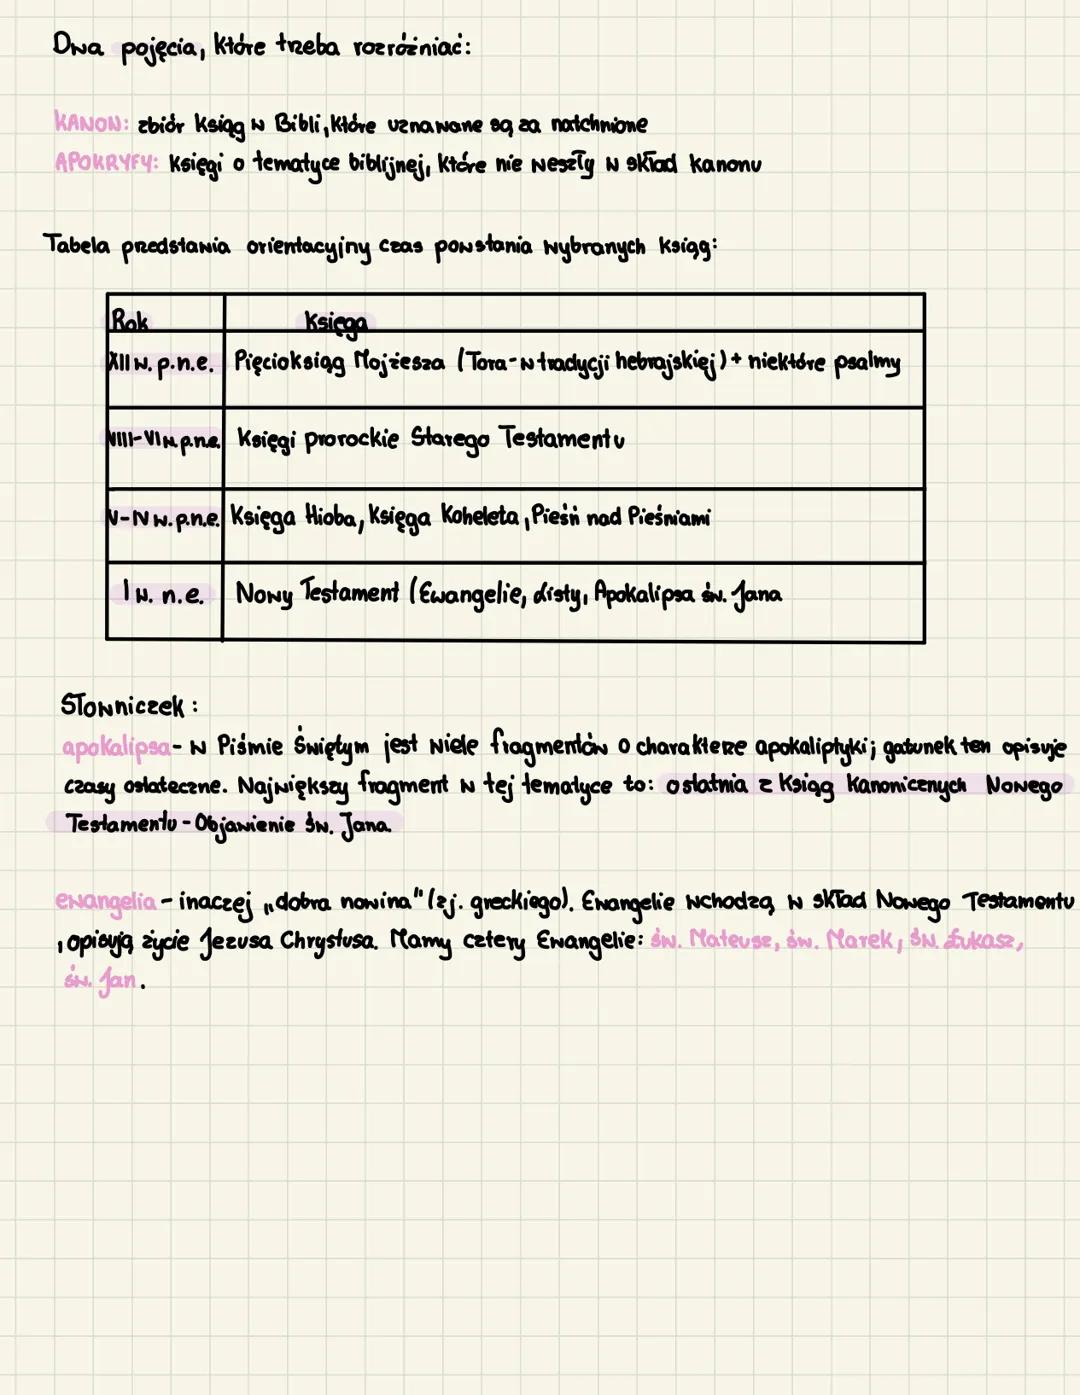 Dwa pojęcia, które trzeba rozróżniać:
KANON: zbiór ksiąg w Bibli, które uznawane są za natchnione
APOKRYFY: księgi o tematyce biblijnej, które nie weszły w skład kanonu
Tabela predstawia orientacyjny czas powstania wybranych ksiąg:
Rok Księga
XII w. p.n.e. Pięcioksiąg Mojżesza (Tora-w tradycji hebrajskiej) + niektóre psalmy
VIII-VI w. p.n.e. Księgi prorockie Starego Testamentu
V-IV w. p.n.e. Księga Hioba, Księga Koheleta, Pieśń nad Pieśniami
I w. n.e. Nowy Testament (Ewangelie, Listy, Apokalipsa św. Jana
Słowniczek:
apokalipsa - w Piśmie Świętym jest wiele fragmentów o charakterze apokaliptyki; gatunek ten opisuje
czasy ostateczne. Największy fragment w tej tematyce to: ostatnia z Ksiąg Kanonicznych Nowego
Testamentu - Objawienie św. Jana.
ewangelia - inaczej „dobra nowina" (z j. greckiego). Ewangelie wchodzą w skład Nowego Testamentu
, opisują życie Jezusa Chrystusa. Mamy cztery Ewangelie: św. Mateusz, św. Marek, św. Łukasz,
św. Jan.